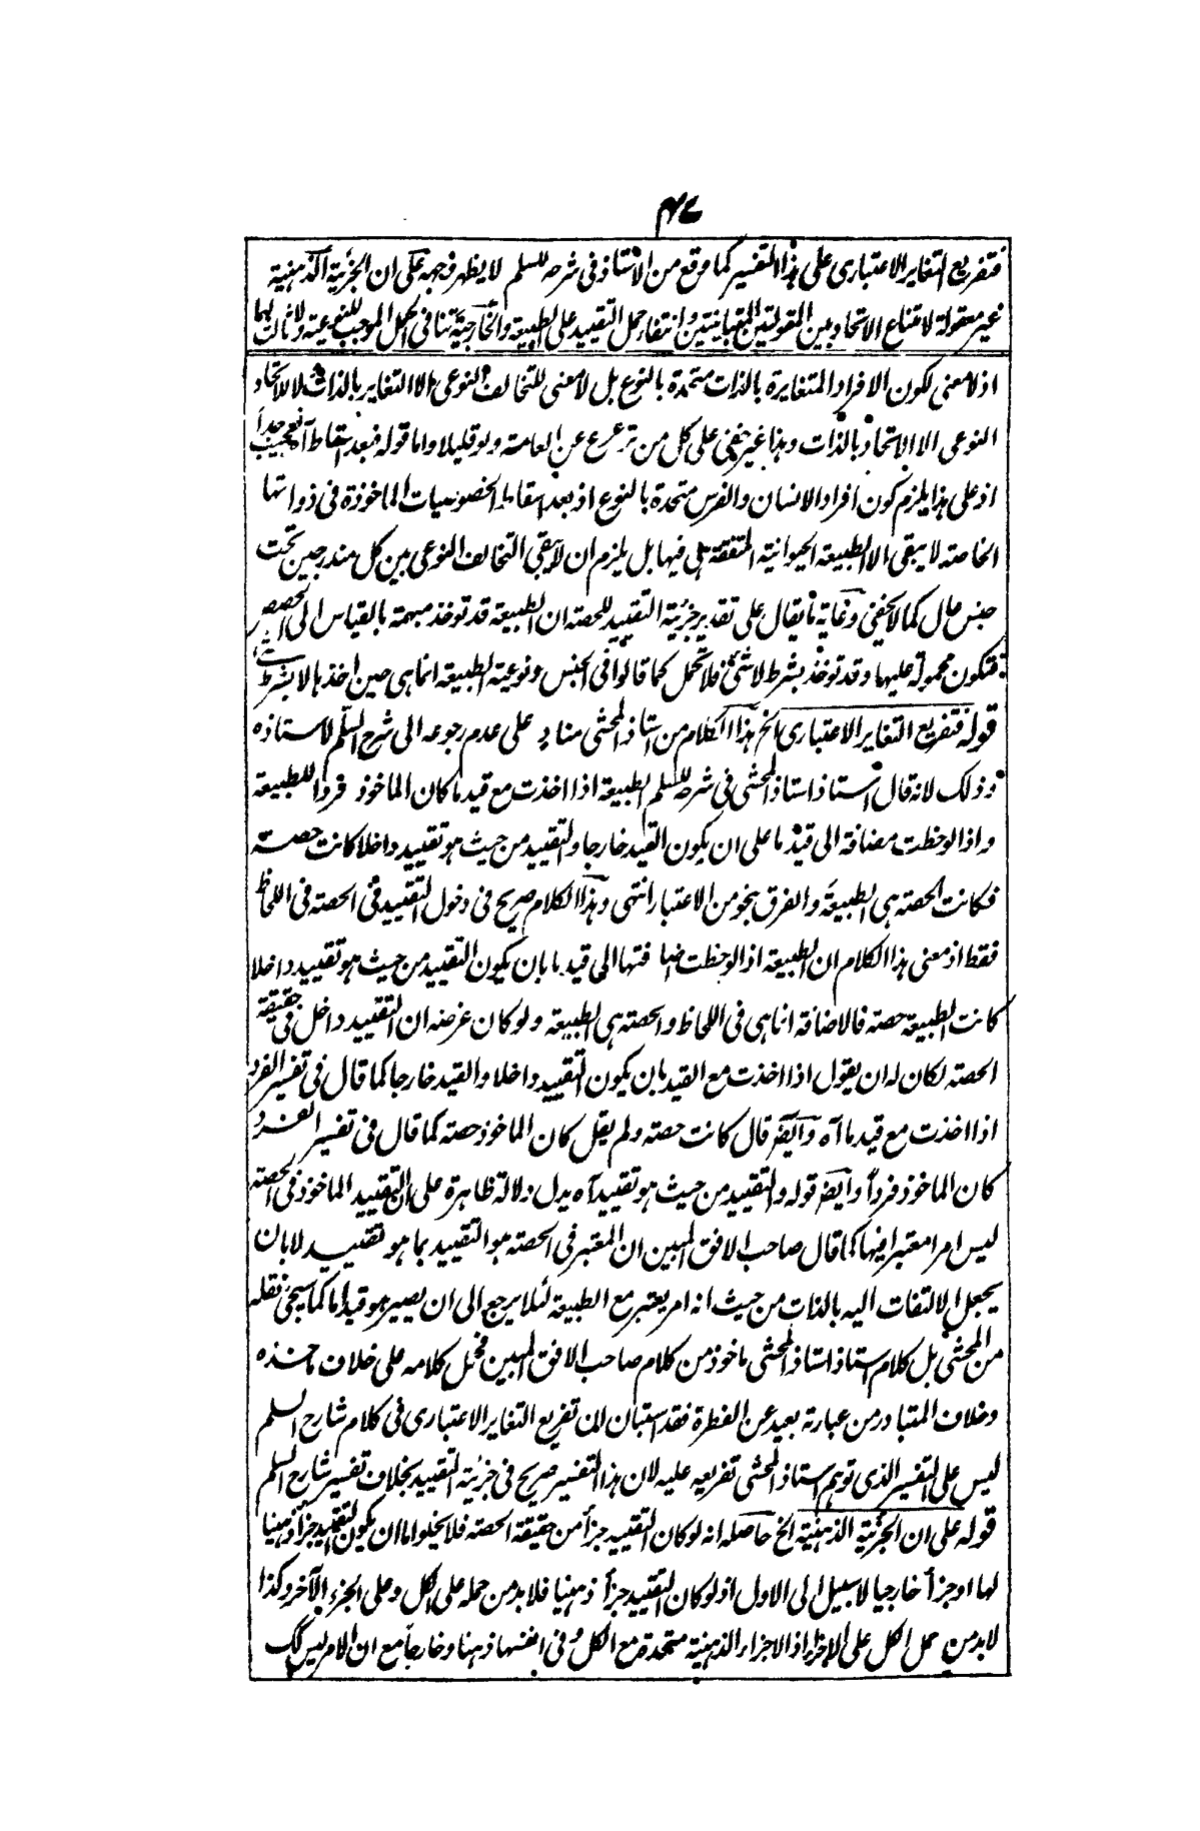 ۴۷
فتفريع التغاير الاعتبارى على هذا التفسير كما وقع من الاستاذ فى شرحه للسلم لا يظهر وجهه على ان الجزئية الذهنية
غير معقولة لامتناع الاتحاد بين المقولتين المتباينتين وانتفاء حمل التقييد على الطبيعة والخارجية تنافى الحمل الموجب للنوعية ولا ثالث لهما
اذ لا معنى لكون الافراد المتغايرة بالذات متحدة بالنوع بل لا معنى للتخالف النوعى الا التغاير بالذات ولا للاتحاد
النوعى الا الاتحاد بالذات وهذا غير خفى على كل من ترعرع عن العامة ولو قليلا واما قوله فبعد اسقاط آه فعجيب جدا
اذ على هذا يلزم كون افراد الانسان والفرس متحدة بالنوع اذ بعد اسقاط الخصوصيات الماخوذة فى ذواتها
الخاصة لا يبقى الا الطبيعة الحيوانية المتفقة هى فيها بل يلزم ان لا يبقى التخالف النوعى بين كل مندرجين تحت
جنس عال كما لا يخفى وغاية ما يقال على تقدير جزئية التقييد للحصة ان الطبيعة قد توخذ مبهمة بالقياس الى الحصص
فتكون محمولة عليها وقد توخذ بشرط لا شئ فلا تحمل كما قالوا فى الجنس ونوعية الطبيعة انما هى حين اخذها لا بشرط شئ
قوله فتفريع التغاير الاعتبارى الخ هذا الكلام من استاذ المحشى مناد على عدم رجوعه الى شرح السلم لاستاذه
وذلك لانه قال استاذ استاذ المحشى فى شرحه للسلم الطبيعة اذا اخذت مع قيد ما كان الماخوذ فردا للطبيعة
واذا لوحظت مضافة الى قيد ما على ان يكون القيد خارجا والتقييد من حيث هو تقييد داخلا كانت حصة
فكانت الحصة هى الطبيعة والفرق بنحو من الاعتبار انتهى وهذا الكلام صريح فى دخول التقييد فى الحصة فى اللحاظ
فقط اذ معنى هذا الكلام ان الطبيعة اذا لوحظت اضافتها الى قيد ما بان يكون التقييد من حيث هو تقييد داخلا
كانت الطبيعة حصة فالاضافة انما هى فى اللحاظ والحصة هى الطبيعة ولو كان غرضه ان التقييد داخل فى حقيقة
الحصة لكان له ان يقول اذا اخذت مع القيد بان يكون التقييد داخلا والقيد خارجا كما قال فى تفسير الفرد
اذا اخذت مع قيد ما آه وايضا قال كانت حصة ولم يقل كان الماخوذ حصة كما قال فى تفسير الفرد
كان الماخوذ فردا وايضا قوله والتقييد من حيث هو تقييد آه يدل دلالة ظاهرة على ان التقييد الماخوذ فى الحصة
ليس امرا معتبرا فيها كما قال صاحب الافق المبين ان المعتبر فى الحصة هو التقييد بما هو تقييد لا بان
يجعل الالتفات اليه بالذات من حيث انه امر يعتبر مع الطبيعة لئلا يرجع الى ان يصير هو قيدا ما كما سيجئ نقله
من المحشى بل كلام استاذ استاذ المحشى ماخوذ من كلام صاحب الافق المبين فحمل كلامه على خلاف ماخذه
وخلاف المتبادر من عبارته بعيد عن الفطرة فقد استبان ان تفريع التغاير الاعتبارى فى كلام شارح السلم
ليس على التفسير الذى توهم استاذ المحشى تفريعه عليه لان هذا التفسير صريح فى جزئية التقييد بخلاف تفسير شارح السلم
قوله على ان الجزئية الذهنية الخ حاصله انه لو كان التقييد جزأ من حقيقة الحصة فلا يخلو اما ان يكون التقييد جزأ ذهنيا
لها او جزأ خارجيا لا سبيل الى الاول اذ لو كان التقييد جزأ ذهنيا فلا بد من حمله على الكل وعلى الجزء الآخر وكذا
لا بد من حمل الكل على الاجزاء اذ الاجزاء الذهنية متحدة مع الكل وفى انفسها ذهنا وخارجا مع ان الامر ليس كك